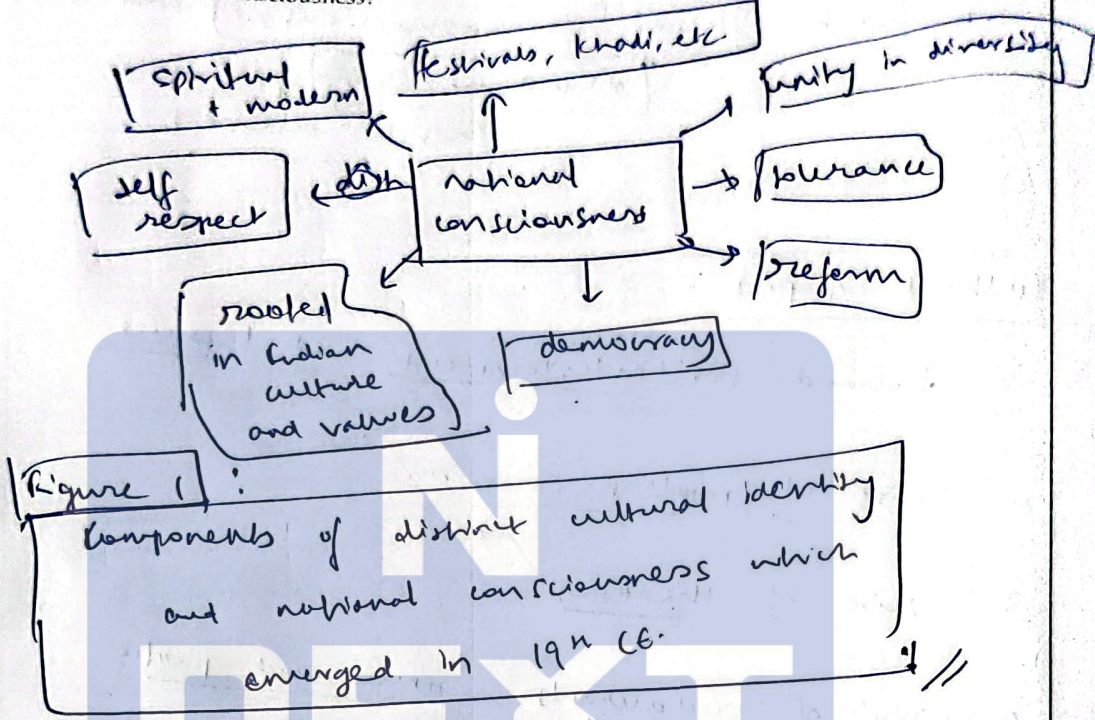 spiritual
+ modern
festivals, khadi, etc.
unity in diversity
self
respect
national
consciousness
tolerance
reform
rooted
in Indian
culture
and values
democracy
Figure 1 :
Components of distinct cultural identity
and national consciousness which
emerged in 19th CE.
Ni
NEXT